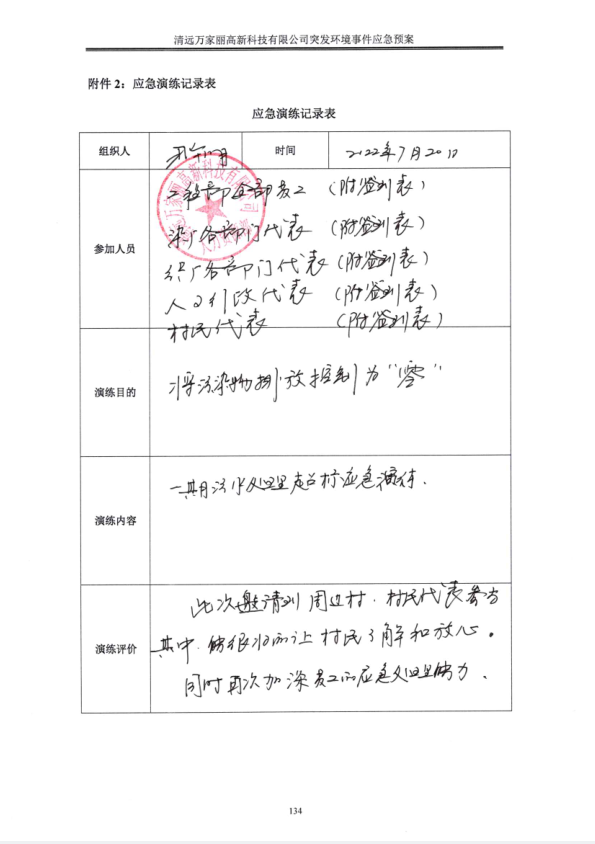 清远万家丽高新科技有限公司突发环境事件应急预案
附件 2：应急演练记录表
应急演练记录表
组织人
时间 2022年7月20日
参加人员
工务部全部员工 (附签到表)
染厂各部门代表 (附签到表)
织厂各部门代表 (附签到表)
人力行政代表 (附签到表)
村民代表 (附签到表)
演练目的
将污染物排放控制为“零”
演练内容
一期污水处理超标应急演练.
演练评价
此次邀请到周边村.村民代表参与
其中.能很好的让村民了解和放心。
同时再次加深员工的应急处理能力.
134